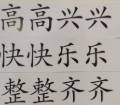 高高兴兴
快快乐乐
整整齐齐